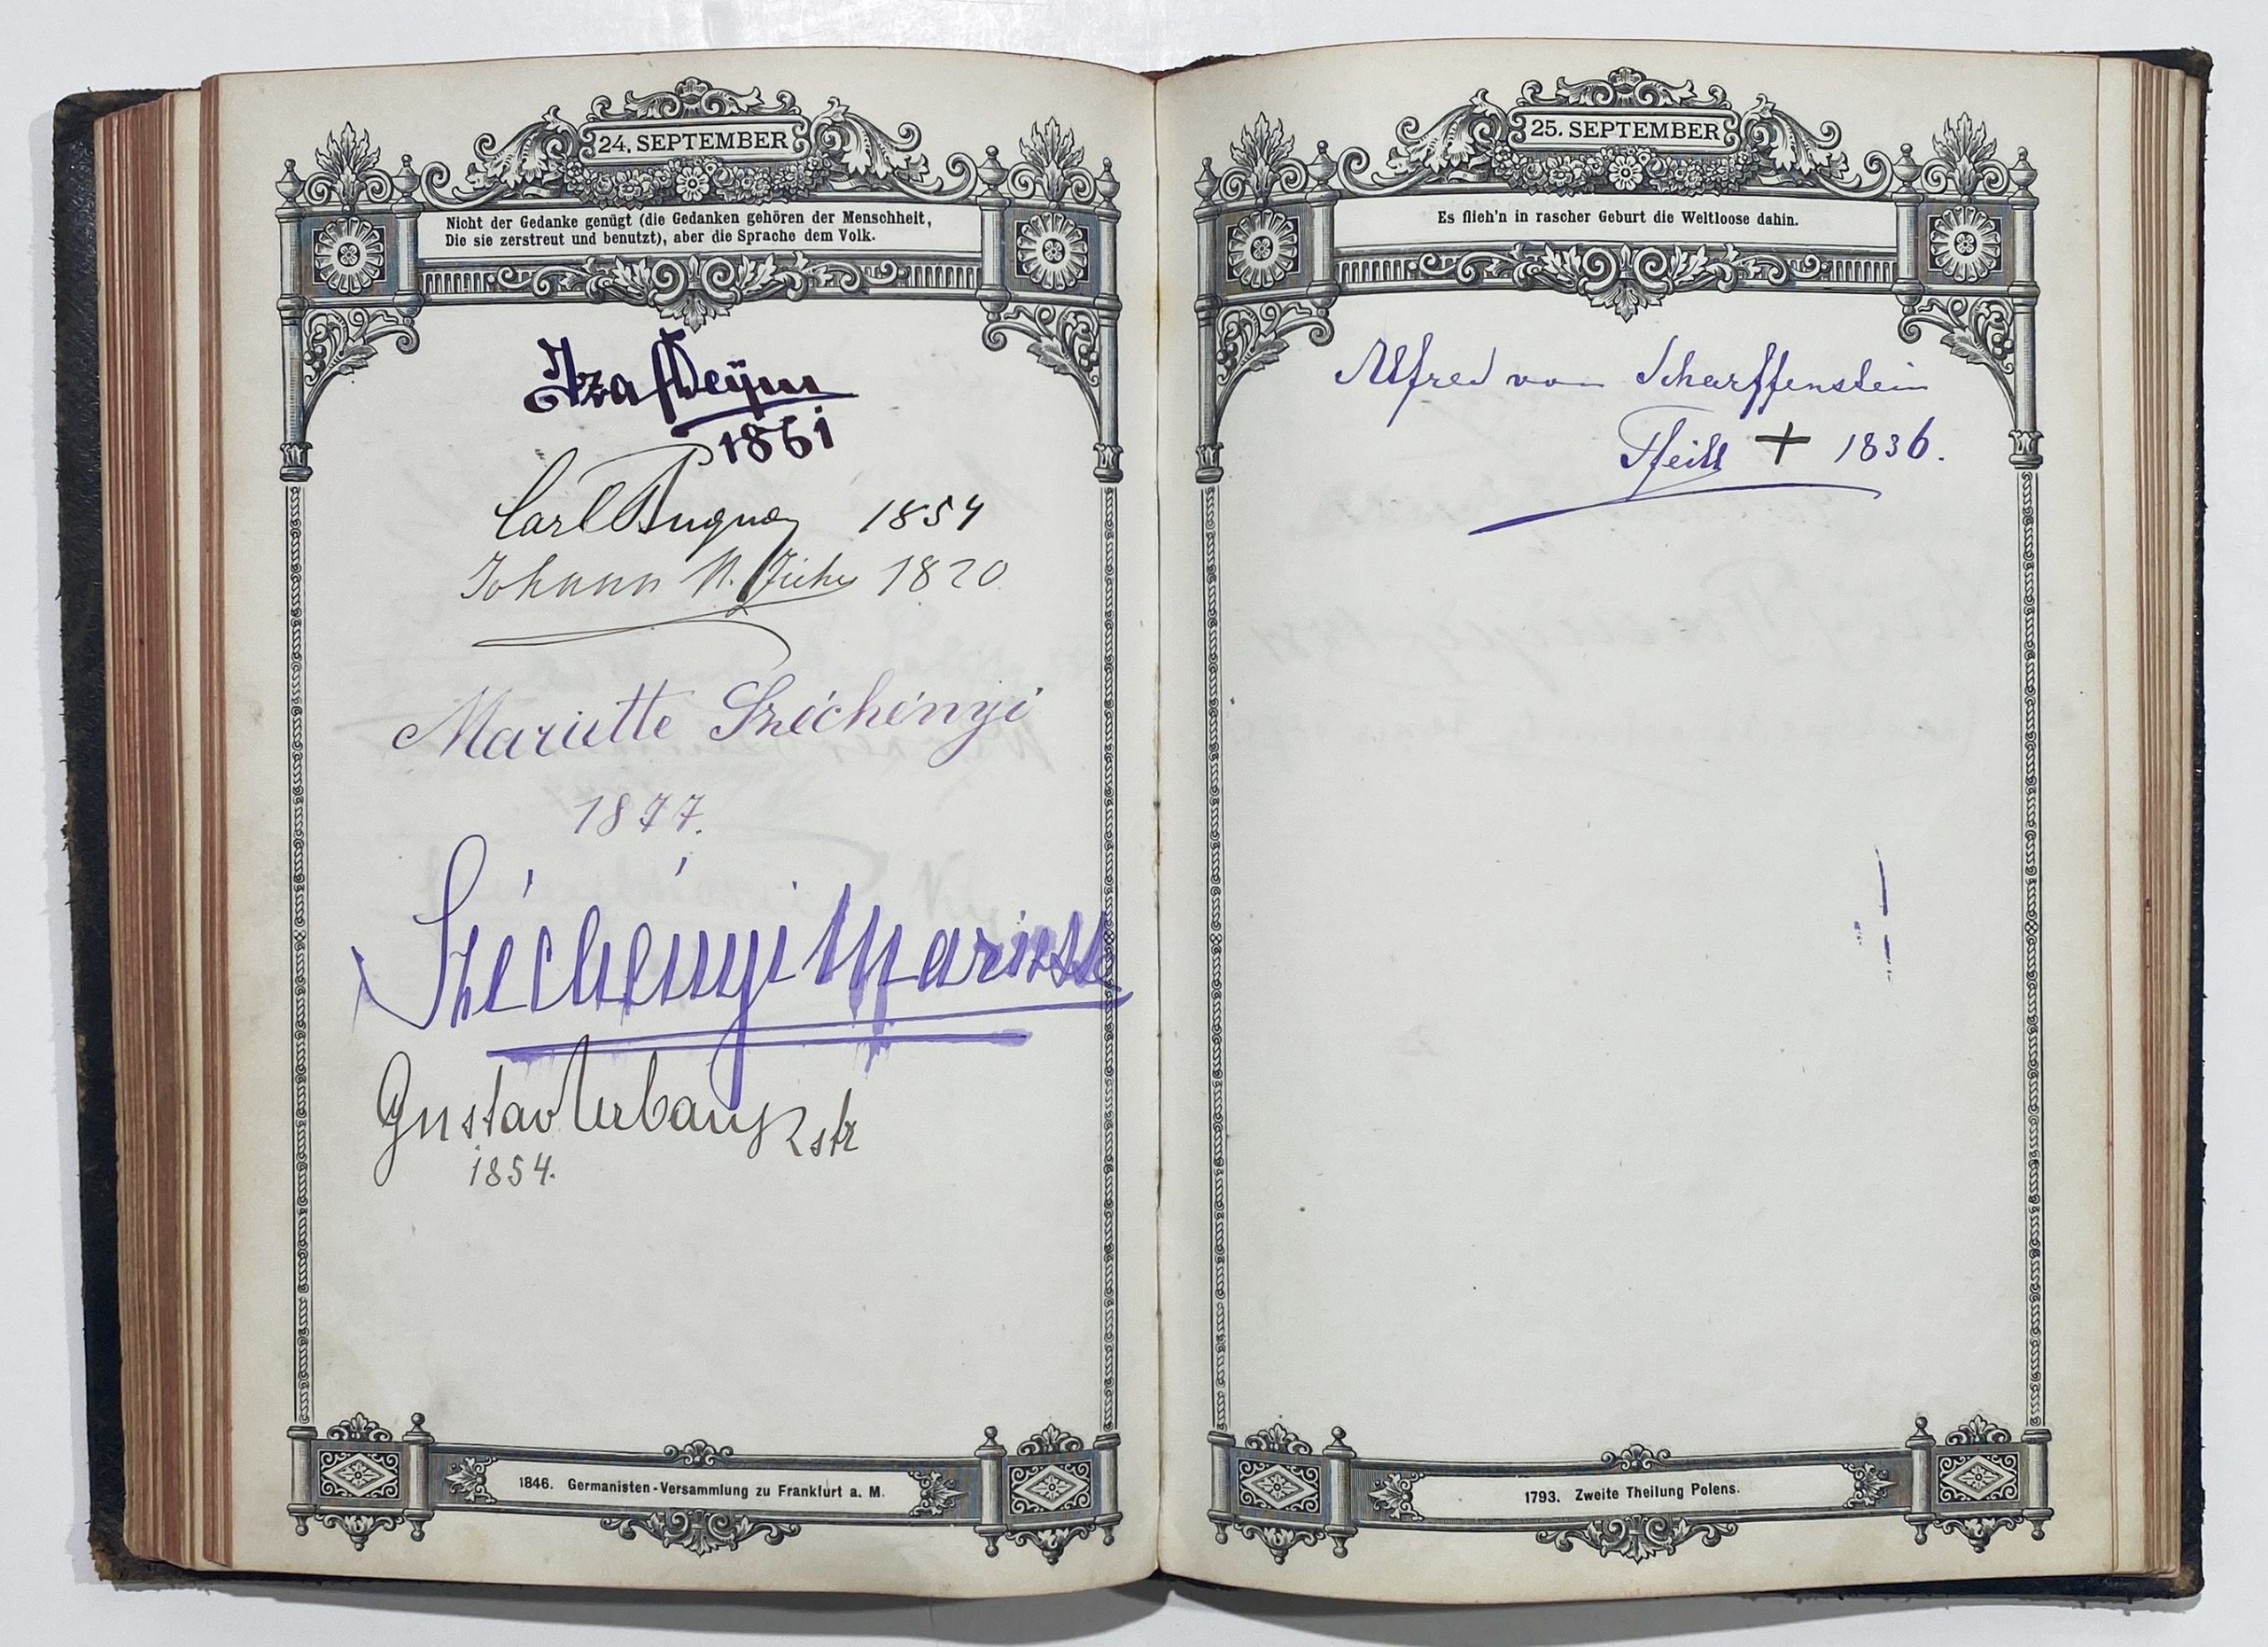 24. SEPTEMBER
Nicht der Gedanke genügt (die Gedanken gehören der Menschheit,
Die sie zerstreut und benutzt), aber die Sprache dem Volk.
Iza Deÿm
1861
Carl Buquoy 1854
Johann N. Zichy 1820
Mariette Széchényi
1877.
Széchényi Mariette
Gustav
1854.
1846. Germanisten-Versammlung zu Frankfurt a. M.
25. SEPTEMBER
Es flieh'n in rascher Geburt die Weltloose dahin.
Alfred von Scharffenstein
Pfeill + 1836.
1793. Zweite Theilung Polens.